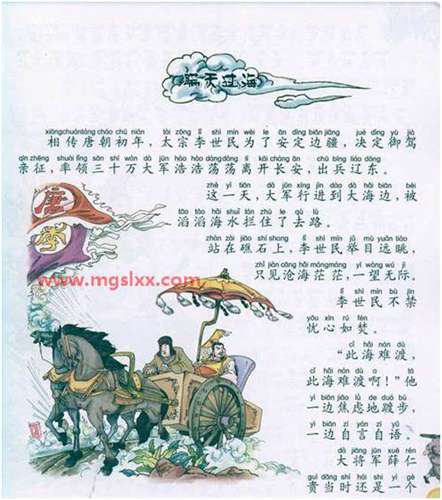 瞒天过海
xiāng chuán táng cháo chū nián tài zōng lǐ shì mín wèi le ān dìng biān jiāng jué dìng yù jià
相传唐朝初年，太宗李世民为了安定边疆，决定御驾
qīn zhēng shuài lǐng sān shí wàn dà jūn hào hào dàng dàng lí kāi cháng ān chū bīng liáo dōng
亲征，率领三十万大军浩浩荡荡离开长安，出兵辽东。
zhè yì tiān dà jūn xíng jìn dào dà hǎi biān bèi
这一天，大军行进到大海边，被
tāo tāo hǎi shuǐ lán zhù le qù lù
滔滔海水拦住了去路。
zhàn zài jiāo shí shang lǐ shì mín jǔ mù yuǎn tiào
站在礁石上，李世民举目远眺，
zhǐ jiàn cāng hǎi máng máng yí wàng wú jì
只见沧海茫茫，一望无际。
lǐ shì mín bù jīn
李世民不禁
yōu xīn rú fén
忧心如焚。
cǐ hǎi nán dù
“此海难渡，
cǐ hǎi nán dù a tā
此海难渡啊！”他
yì biān jiāo lǜ de duó bù
一边焦虑地踱步，
yì biān zì yán zì yǔ
一边自言自语。
dà jiāng jūn xuē rén
大将军薛仁
guì dāng shí hái shì yí gè
贵当时还是一个
唐
www.mgslxx.com